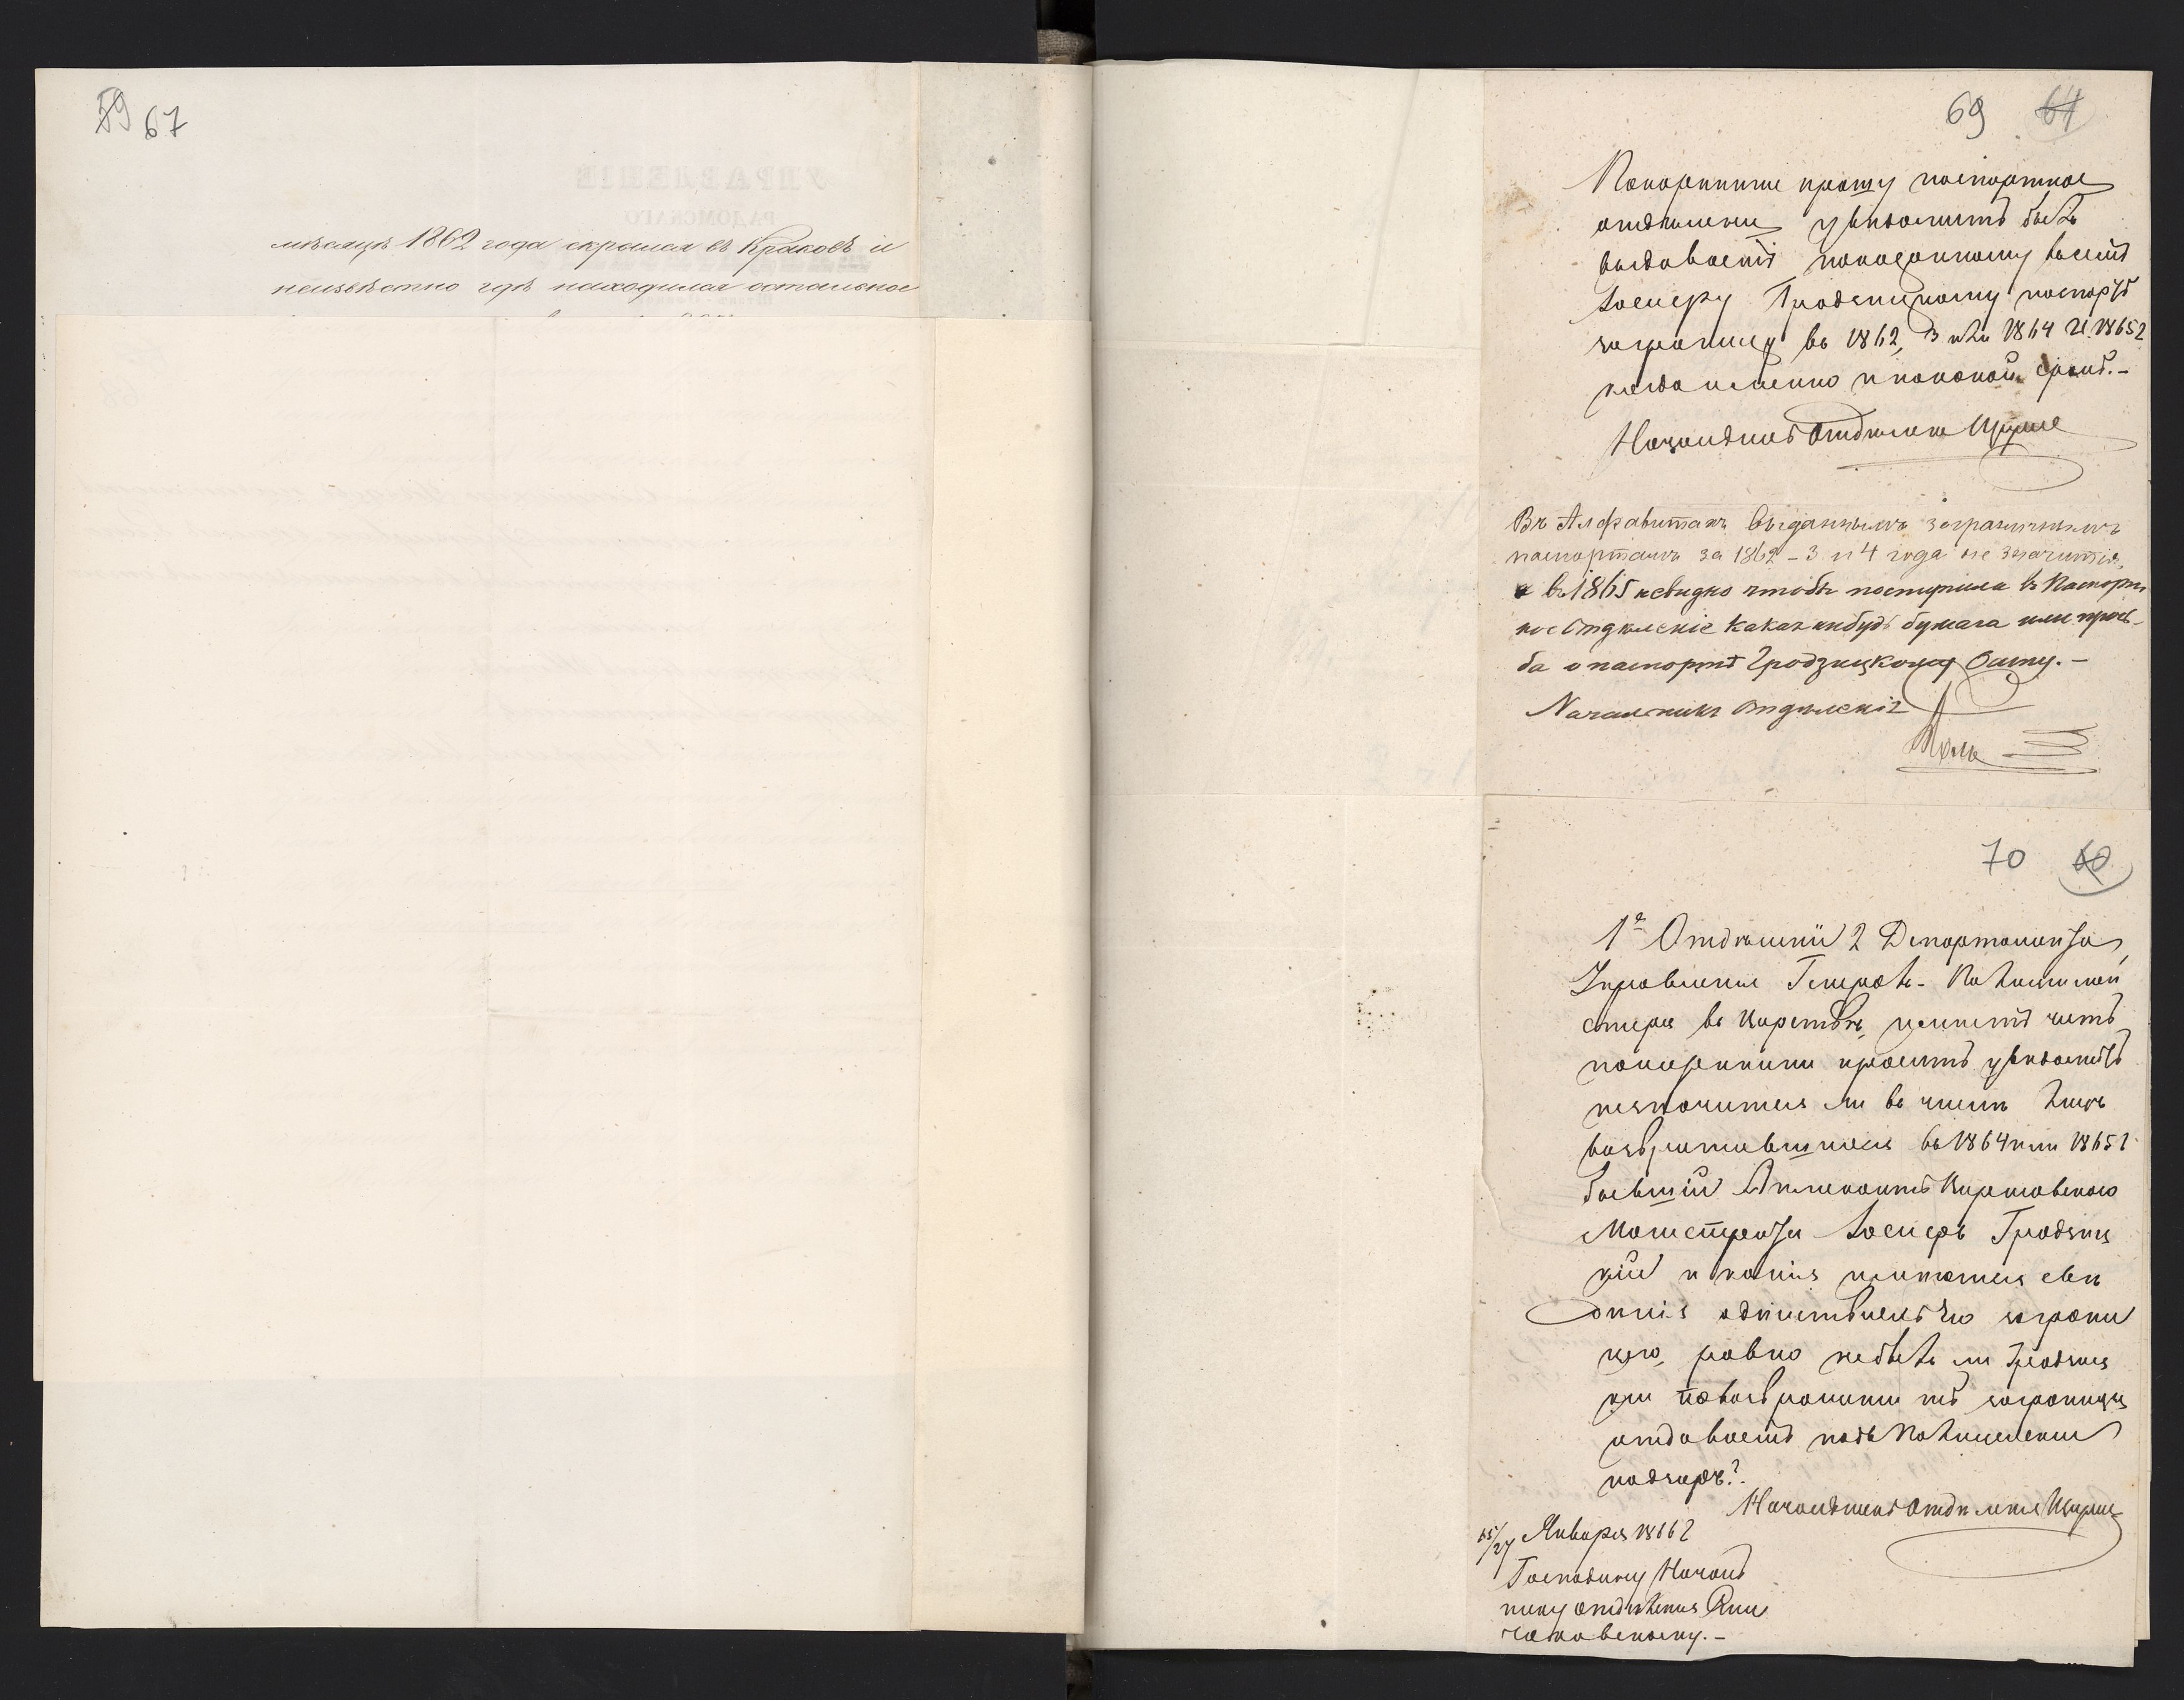 59 67
мѣсяцѣ 1862 года скрылся въ Краковъ и
неизвѣстно гдѣ находился остальное
69 61
Покорнѣйше прошу паспортное
отдѣленіе увѣдомить былъ
выдаваемъ поведенному
Іосифу Гродзицкому паспортъ
заграницу въ 1862, 3 или 1864 и 1865 г
когда именно и на какой срокъ.-
Начальникъ Отдѣленія
Въ Алфавитахъ выданнымъ заграничнымъ
паспортамъ за 1862 - 3 и 4 года не значится,
а въ 1865 невидно чтобы поступила въ Паспорт
ное Отдѣленіе какая нибудь бумага или прось-
ба о паспортѣ Гродзицкому Осипу.-
Начальникъ Отдѣленія
70 60
1е Отдѣленіе 2 Департамента
Управленія Генералъ-Полицмей
стера въ Царствѣ, имѣетъ честь
покорнѣйше просить увѣдомить
незначится ли въ числѣ лицъ
возвратившихся въ 1864 или 1865 г
бывшій
Магистрата Іосифъ Гродзиц
кій и какія имѣются свѣ
дѣнія о дѣйствіяхъ его заграни
цею, равно небылъ ли Гродзиц
кій по возвращеніи изъ заграницы
отдаваемъ подъ Полицейскій
надзоръ?
Начальникъ Отдѣленія
15/27 Января 1866 г
Господину Началь
нику Отдѣленія